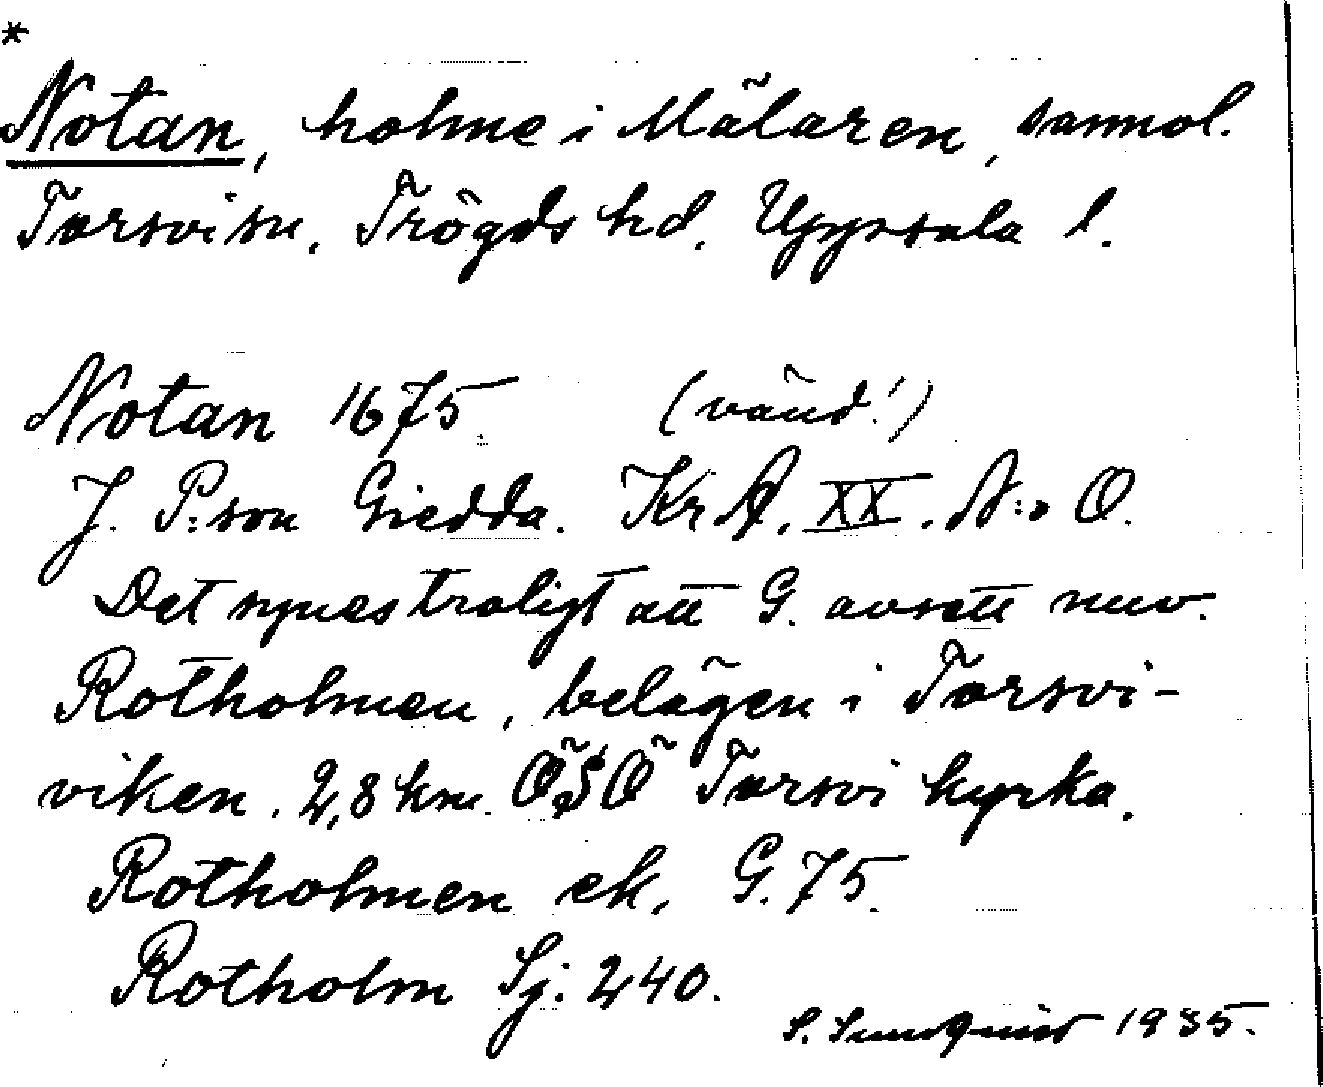 *
Notan, holme i Mälaren, sannol.
Torsvi sn, Trögds hd, Uppsala l.
Notan 1675 (vänd!)
J. P:son Giedda. KrA. XX. N:o O.
Det synes troligt att G. avsett nuv.
Rotholmen, belägen i Torsvi-
viken, 2,8 km. ÖSÖ Torsvi kyrka.
Rotholmen ek. G. 75.
Rotholm Sj. 240.
S. Sundquist 1935.